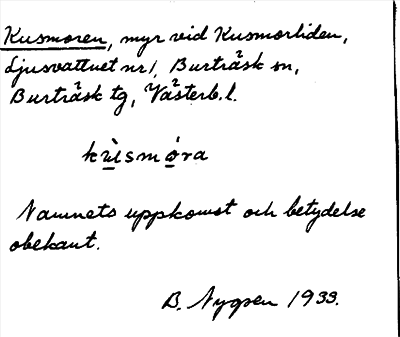 Kusmoren, myr vid Kusmorliden,
Ljusvattnet nr 1, Burträsk sn,
Burträsk tg, Västerb. l.
kùsmóra
Namnets uppkomst och betydelse
obekant.
B. 1933.